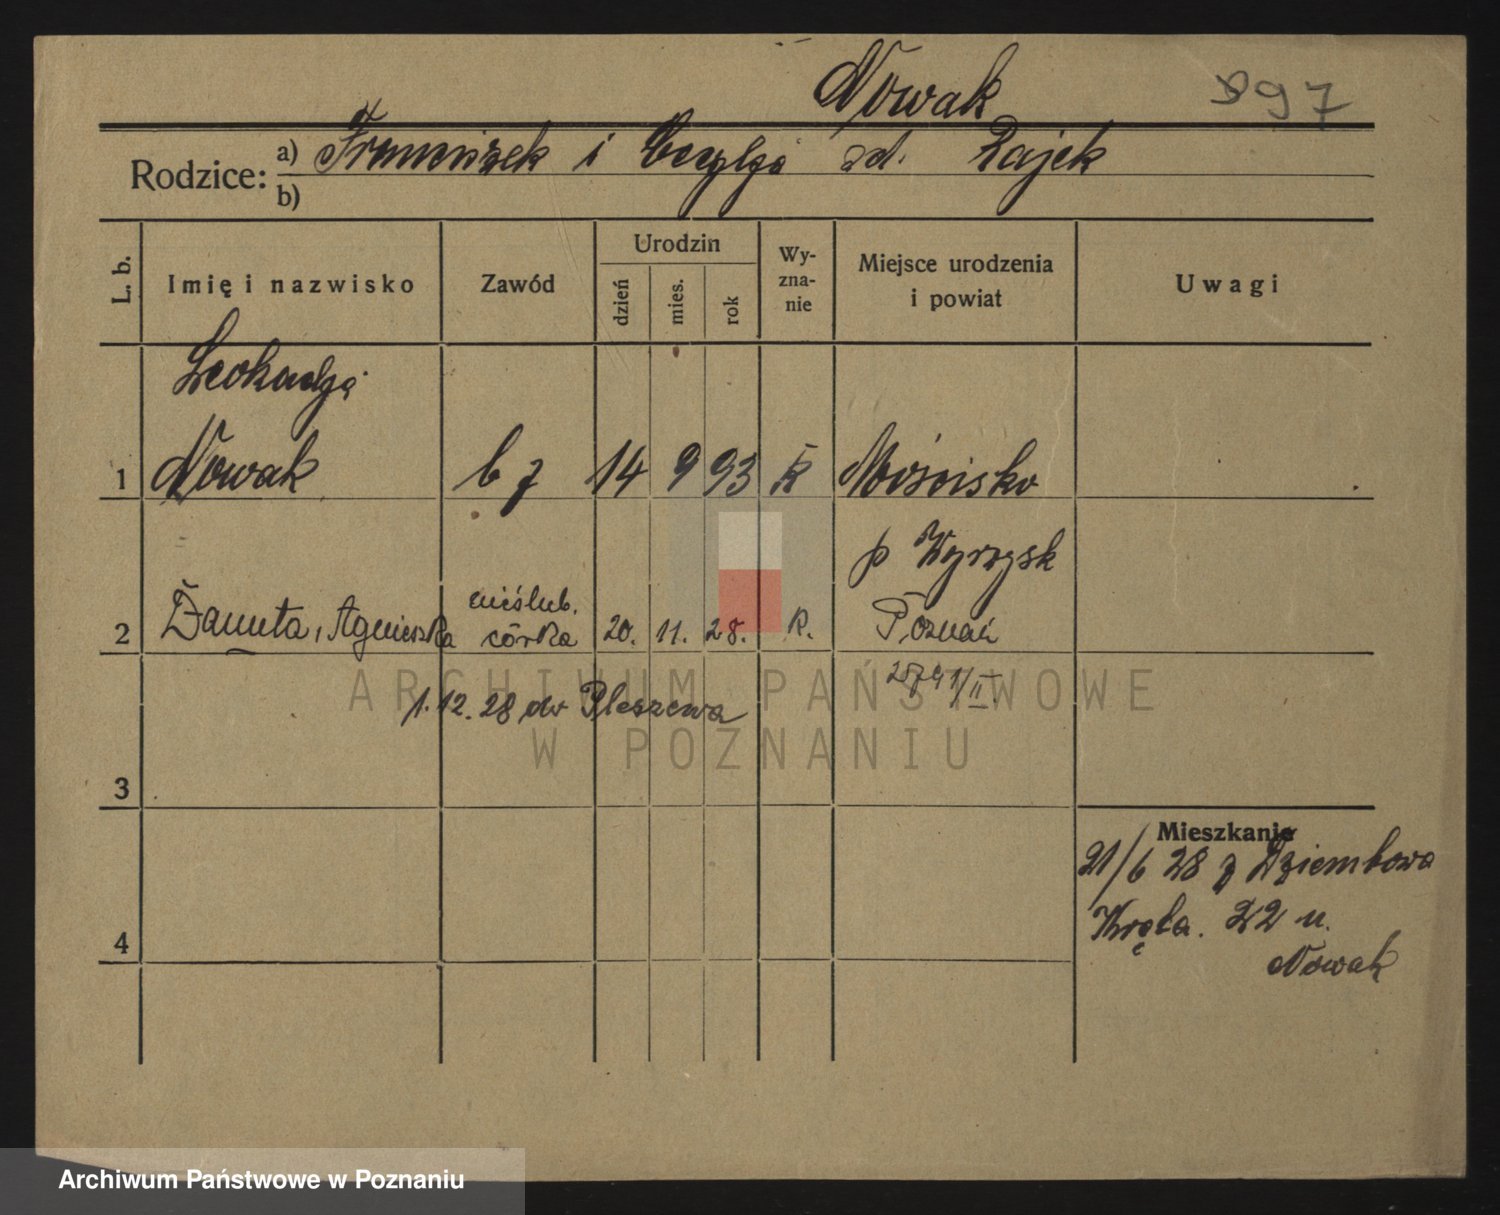 Nowak
997
Rodzice: a) Franciszek i Cecylja zd. Zająk
b)
L. b.
Imię i nazwisko
Zawód
Urodzin
dzień
mies.
rok
Wy-
zna-
nie
Miejsce urodzenia
i powiat
Uwagi
Leokadja
1 Nowak b z 14 9 93 R Mościsko
p Wyrzysk
nieślub.
2 Danuta, Agnieszka córka 20. 11. 28. R. Poznań
1/II.
1.12.28 do Pleszewa
ARCHIWUM PAŃSTWOWE
W POZNANIU
3
Mieszkanie
21/6 28 z Dziembowa
Kręta. 22 u.
4
Nowak
Archiwum Państwowe w Poznaniu